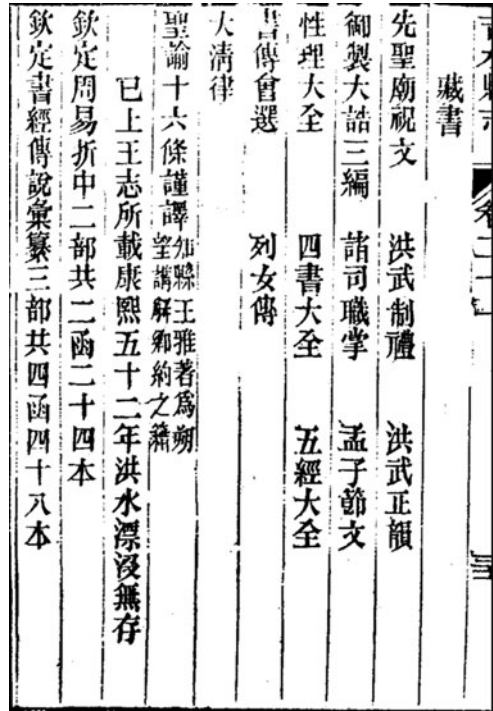 吉水縣志
卷二十一
三
藏書
先聖廟祝文 洪武制禮 洪武正韻
御製大誥三編 諸司職掌 孟子節文
性理大全 四書大全 五經大全
書傳會選 列女傳
大清律
聖諭十六條謹譯 知縣王雅著爲朔
望講解鄉約之籍
已上王志所載康熙五十二年洪水漂沒無存
欽定周易折中二部共二函二十四本
欽定書經傳說彙纂三部共四函四十八本